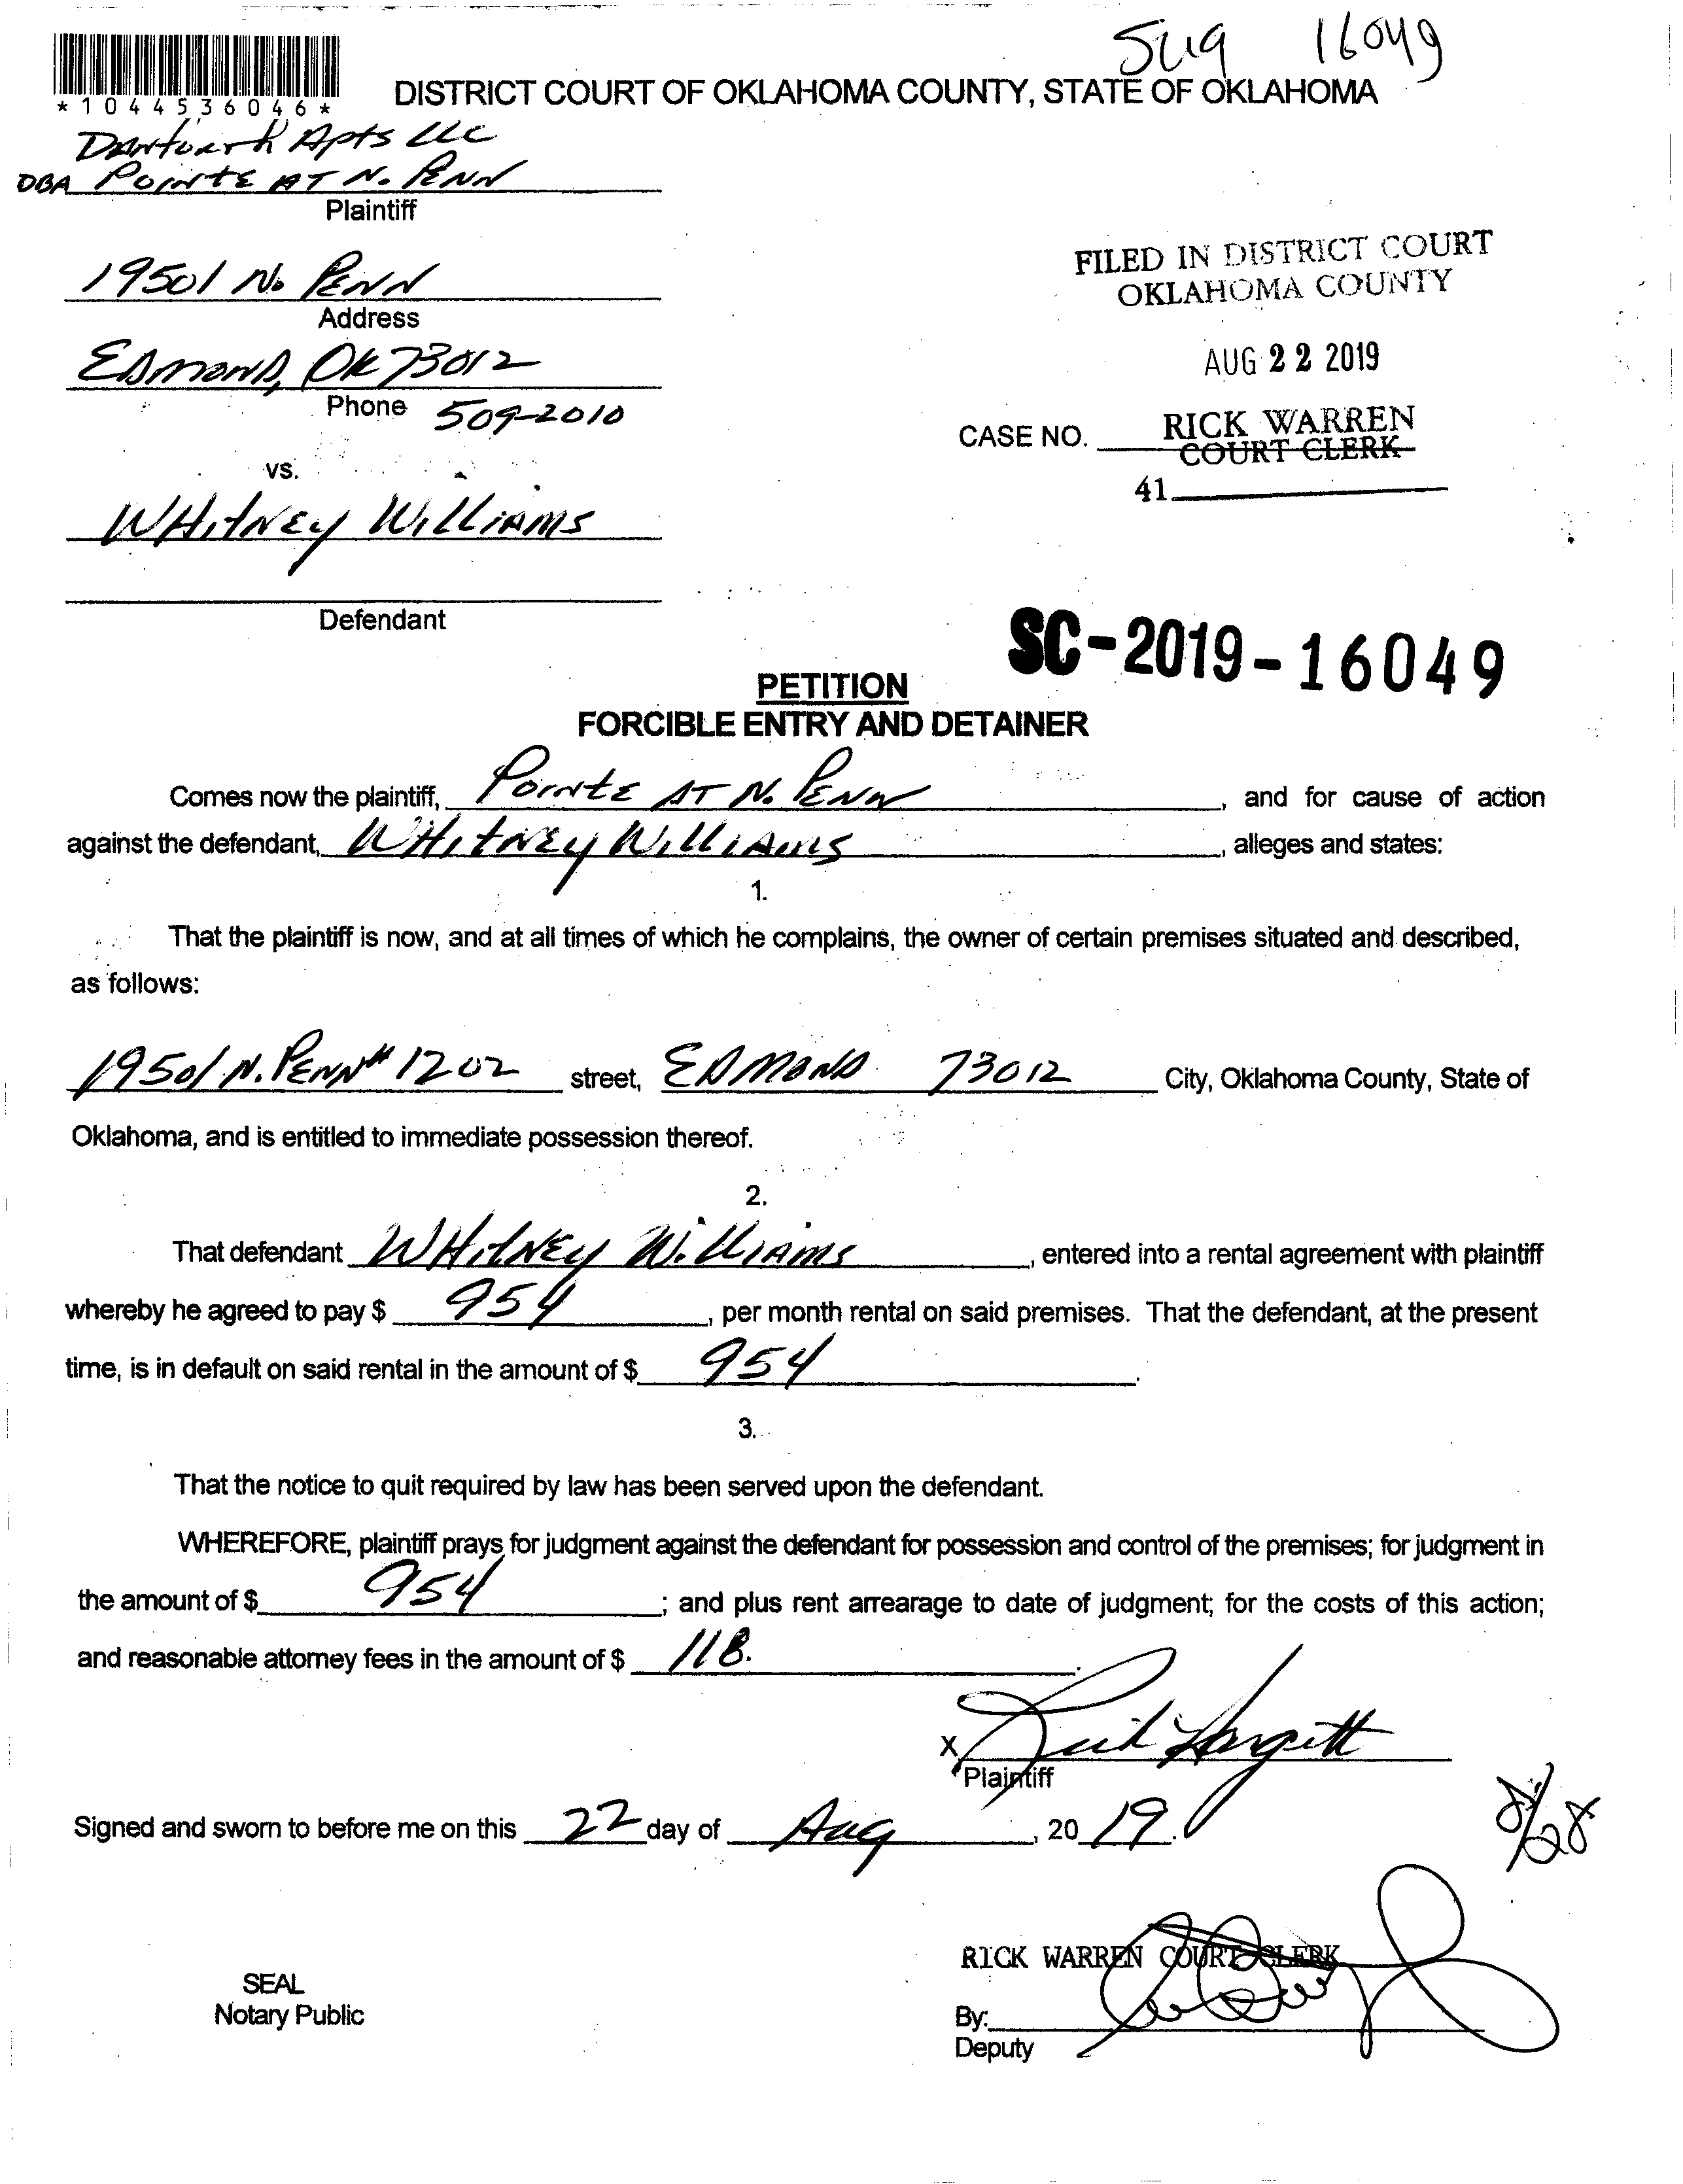 SC19 16049
*1044536046*
DISTRICT COURT OF OKLAHOMA COUNTY, STATE OF OKLAHOMA
Danforth Apts LLC
DBA Pointe AT N. Penn
Plaintiff
19501 N. Penn
Address
Edmond, OK 73012
Phone 509-2010
vs.
Whitney Williams
Defendant
FILED IN DISTRICT COURT
OKLAHOMA COUNTY
AUG 22 2019
CASE NO. RICK WARREN
COURT CLERK
41
SC-2019-16049
PETITION
FORCIBLE ENTRY AND DETAINER
Comes now the plaintiff, Pointe AT N. Penn, and for cause of action
against the defendant, Whitney Williams, alleges and states:
1.
That the plaintiff is now, and at all times of which he complains, the owner of certain premises situated and described,
as follows:
19501 N. Penn # 1202 street, Edmond 73012 City, Oklahoma County, State of
Oklahoma, and is entitled to immediate possession thereof.
2.
That defendant Whitney Williams, entered into a rental agreement with plaintiff
whereby he agreed to pay $ 954, per month rental on said premises. That the defendant, at the present
time, is in default on said rental in the amount of $ 954.
3.
That the notice to quit required by law has been served upon the defendant.
WHEREFORE, plaintiff prays for judgment against the defendant for possession and control of the premises; for judgment in
the amount of $ 954; and plus rent arrearage to date of judgment; for the costs of this action;
and reasonable attorney fees in the amount of $ 118.
X Hargett
Plaintiff
Signed and sworn to before me on this 22 day of Aug, 2019.
8/28
RICK WARREN COURT CLERK
SEAL
Notary Public
By:
Deputy